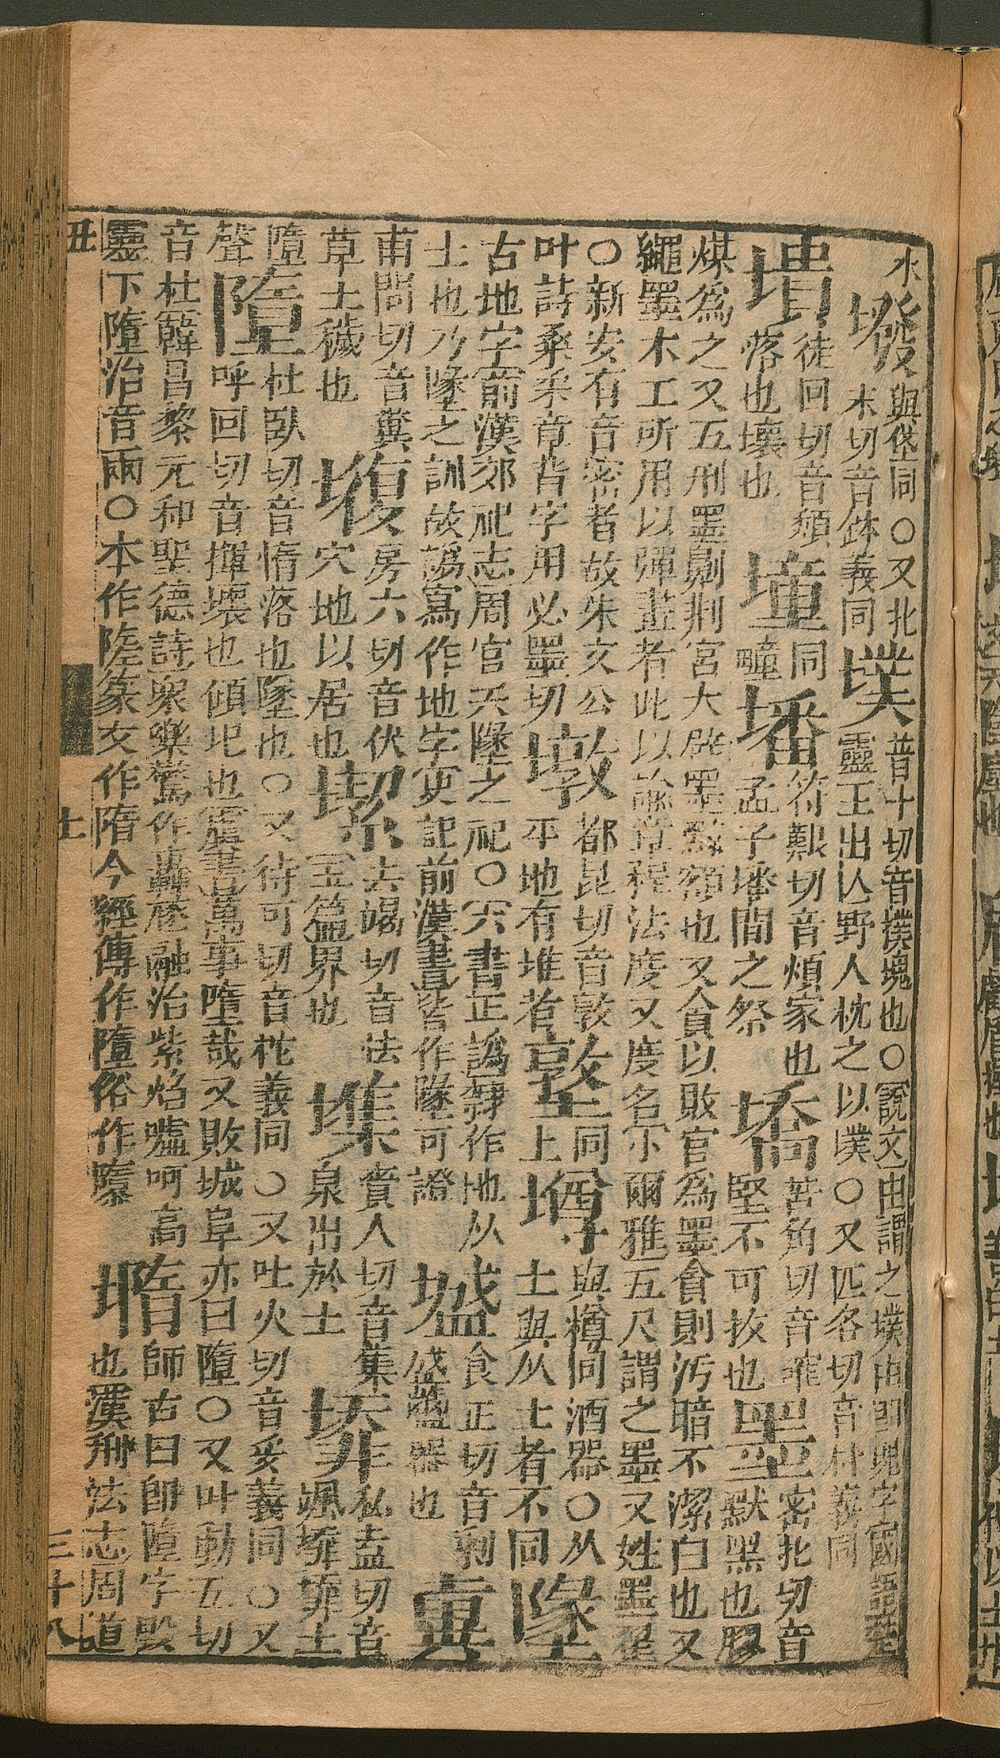 水墢與垡同○又北末切音鉢義同墣普卜切音樸塊也○說文凷謂之墣凷即塊字國語楚靈王出亾野人枕之以墣○又匹各切音粕義同
墤徒回切音頹落也壞也墥同疃墦符艱切音煩冢也孟子墦間之祭墧苦角切音確堅不可拔也墨密北切音默黑也膠
煤為之又五刑墨劓剕宮大辟墨黥額也又貪以敗官為墨貪則汚暗不潔白也又繩墨木工所用以彈畫者此以諭章程法度又度名小爾雅五尺謂之墨又姓墨翟
○新安有音密者故朱文公叶詩桑柔章背字用必墨切墩都昆切音敦平地有堆者墪同上墫與樽同酒器○从土與从士者不同墬
古地字前漢郊祀志周官天墬之祀○六書正譌隸作地从土也乃墜之訓故譌寫作地字史記前漢書皆作墬可證墭食正切音剩盛虀器也
甫問切音糞草土穢也房六切音伏穴地以居也去竭切音玉篇界也賫人切音集泉出於土私盍切音颯土
墮聲墮杜臥切音惰落也墜也○又待可切音柁義同○又吐火切音妥義同○又呼回切音揮壞也傾圮也虞書萬事墮哉又敗城阜亦曰墮○又叶動五切
音杜韓昌黎元和聖德詩衆樂驚作轟豗融冶紫焰噓呵高靈下墮冶音雨○本作陊篆文作隋今經傳作墮俗作隳師古曰卽墮字毁也漢刑法志周道
丑 土 三十八